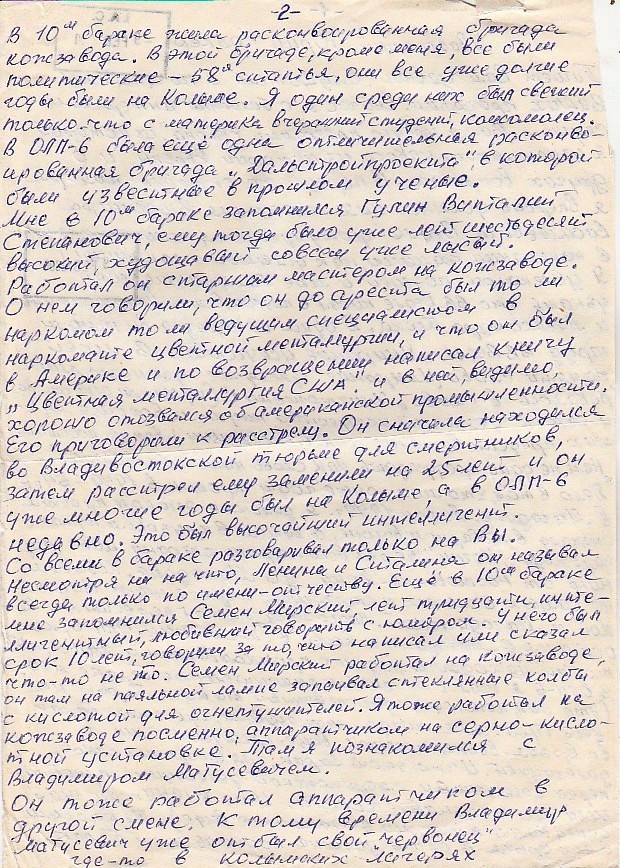 -2-
В 10ом бараке жила расконвоированная бригада
кожзавода. В этой бригаде, кроме меня, все были
политические – 58я статья, они все уже долгие
годы были на Колыме. Я один среди них был свежий
только что с материка вчерашний студент, комсомолец.
В ОЛП-6 была ещё одна отличительная расконво-
ированная бригада „Дальстройпроекта", в которой
были известные в прошлом ученые.
Мне в 10ом бараке запомнился Гулин Виталий
Степанович, ему тогда было уже лет шестьдесят
высокий, худощавый совсем уже лысый.
Работал он старшим мастером на кожзаводе.
О нем говорили, что он до ареста был то ли
наркомом то ли ведущим специалистом в
наркомате цветной металлургии, и что он был
в Америке и по возвращении написал книгу
„Цветная металлургия США" и в ней, видимо,
хорошо отозвался об американской промышленности.
Его приговорили к расстрелу. Он сначала находился
во Владивостокской тюрьме для смертников,
затем расстрел ему заменили на 25 лет и он
уже многие годы был на Колыме, а в ОЛП-6
недавно. Это был высочайший интеллигент.
Со всеми в бараке разговаривал только на Вы.
Несмотря ни на что, Ленина и Сталина он называл
всегда только по имени-отчеству. Ещё в 10ом бараке
мне запомнился Семен Мирский лет тридцати, инте-
ллигентный, любивший говорить с юмором. У него был
срок 10 лет, говорим за то, что написал или сказал
что-то не то. Семен Мирский работал на кожзаводе,
он там на паяльной лампе запаивал стеклянные колбы
с кислотой для огнетушителей. Я тоже работал на
кожзаводе посменно, аппаратчиком на серно-кисло-
тной установке. Там я познакомился с
Владимиром Матусевичем.
Он тоже работал аппаратчиком в
другой смене. К тому времени Владимир
Матусевич уже отбыл свой „червонец"
где-то в Колымских лагерях